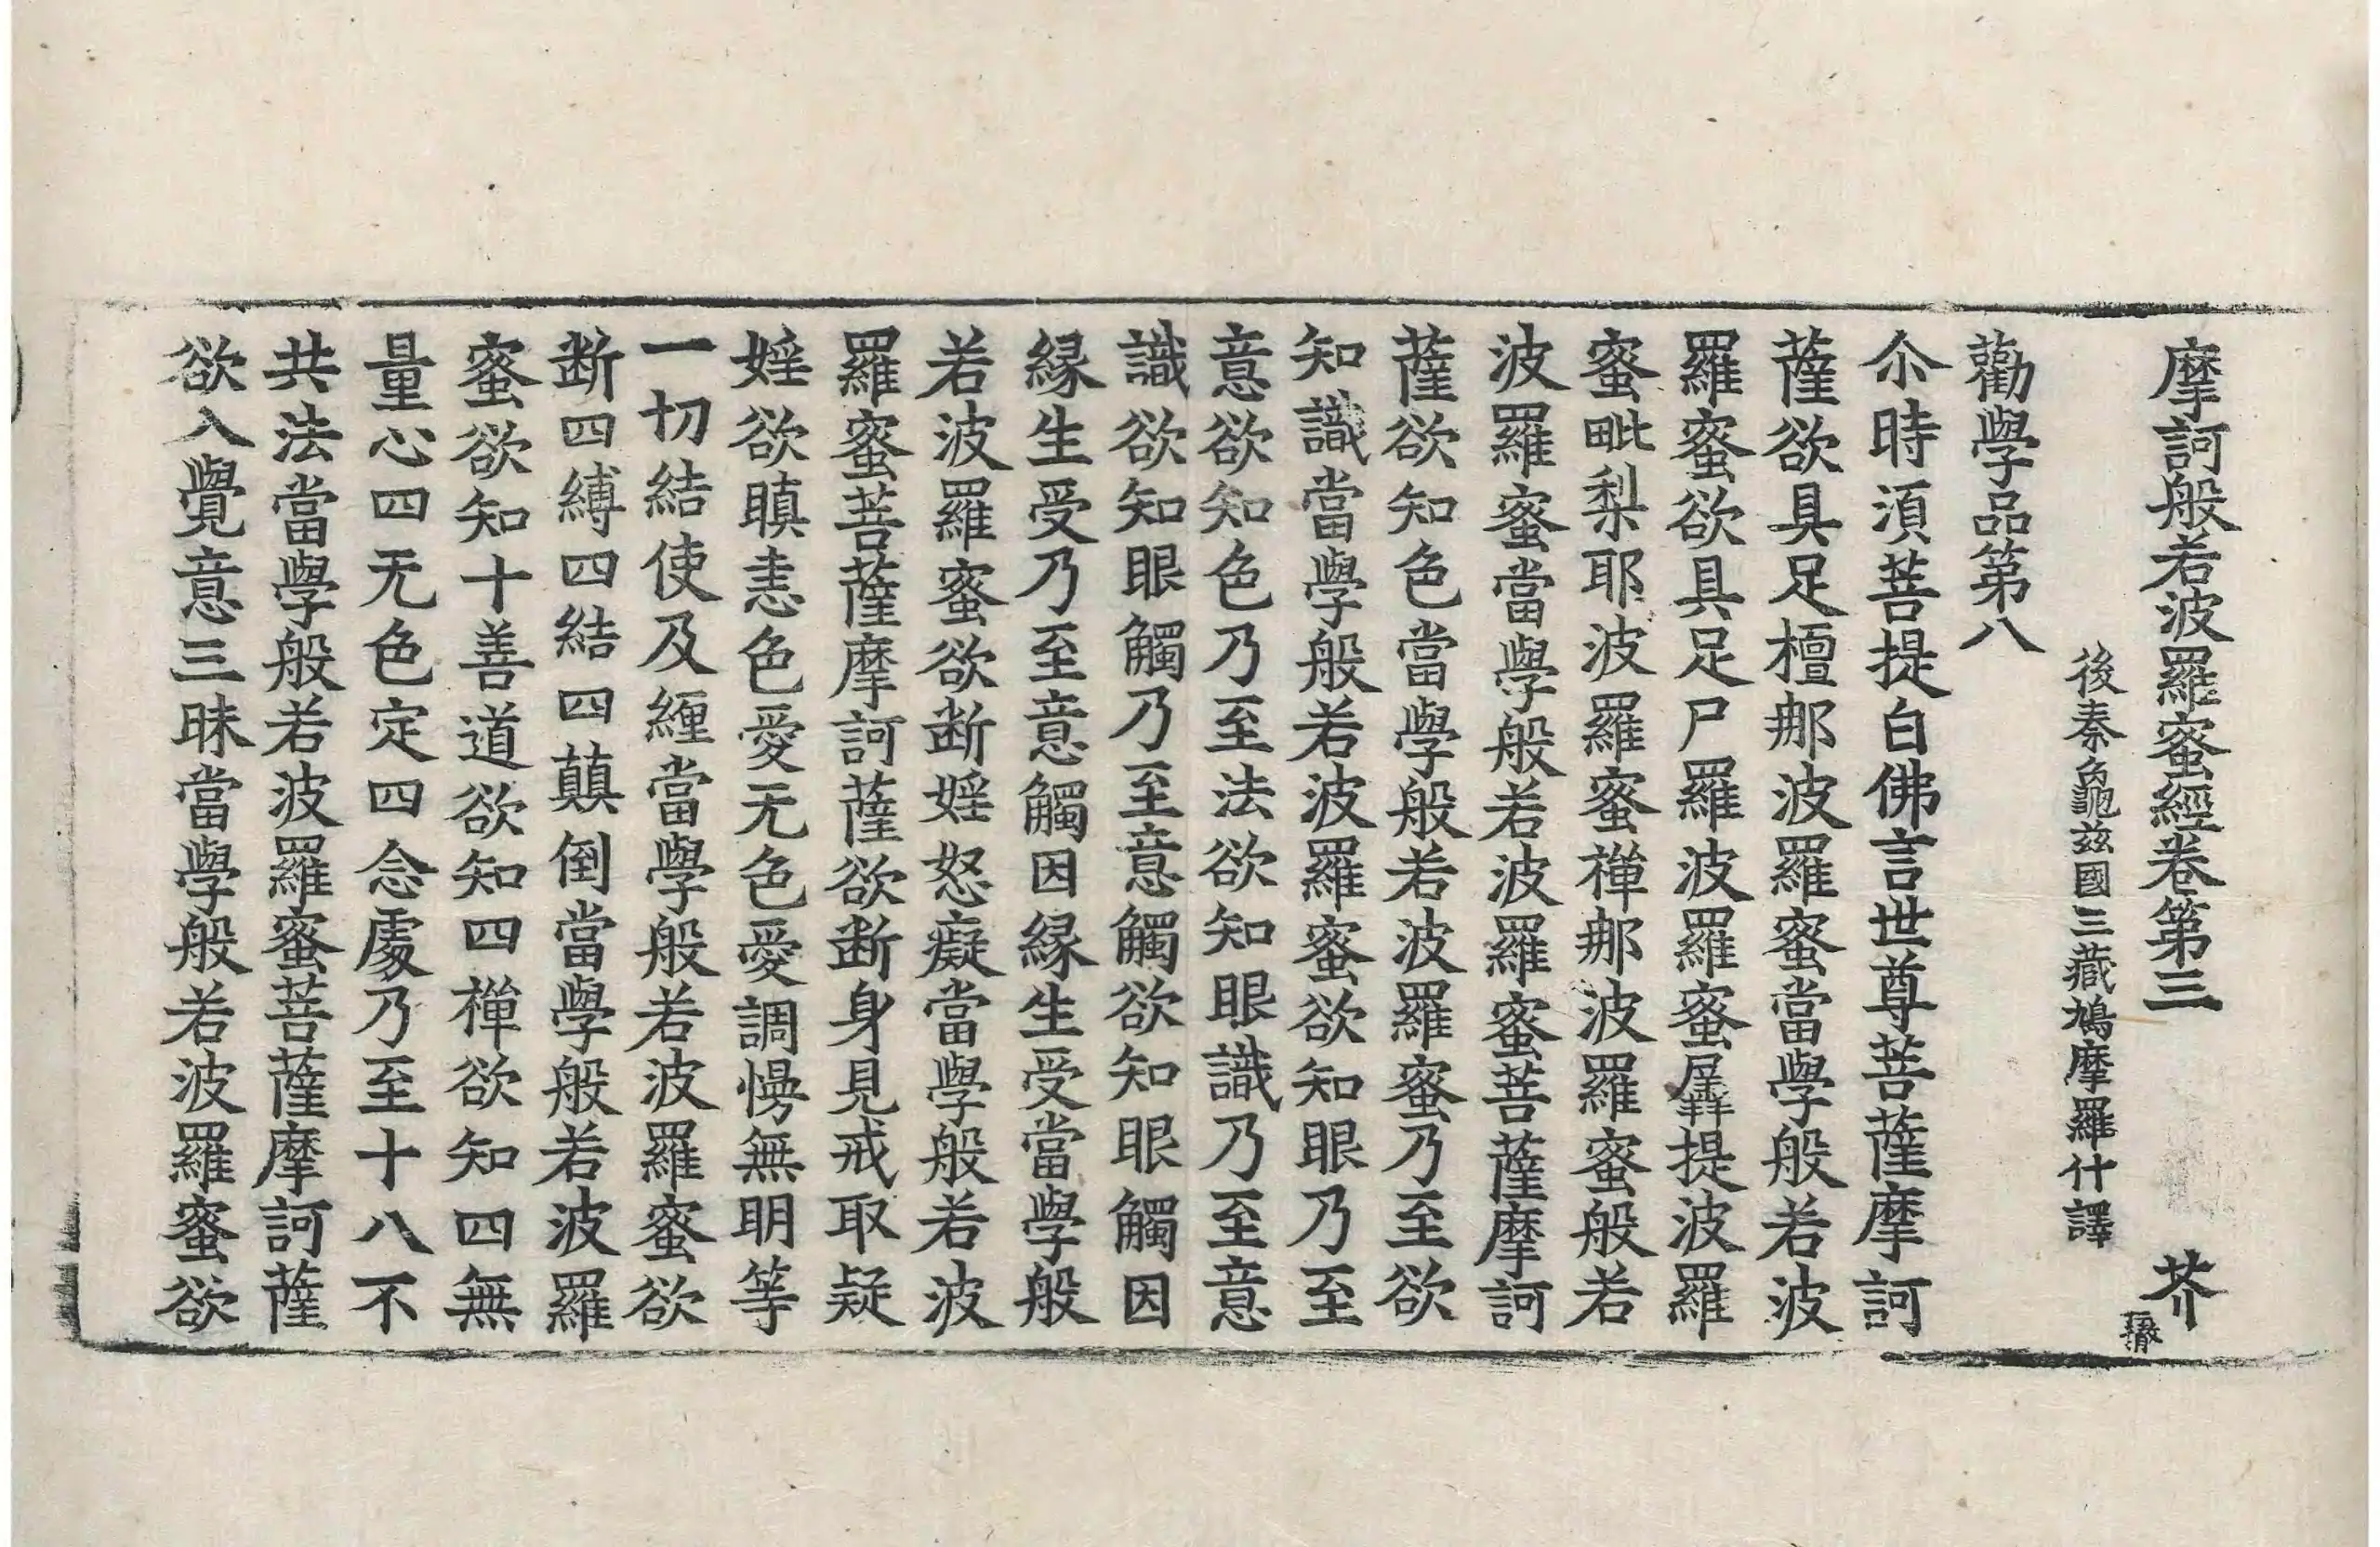 摩訶般若波羅蜜經卷第三　芥
後秦龜茲國三藏鳩摩羅什譯
勸學品第八
尒時湏菩提白佛言世尊菩薩摩訶
薩欲具足檀𨚗波羅蜜當學般若波
羅蜜欲具足尸羅波羅蜜羼提波羅
蜜毗梨耶波羅蜜禪𨚗波羅蜜般若
波羅蜜當學般若波羅蜜菩薩摩訶
薩欲知色當學般若波羅蜜乃至欲
知識當學般若波羅蜜欲知眼乃至
意欲知色乃至法欲知眼識乃至意
識欲知眼觸乃至意觸欲知眼觸因
縁生受乃至意觸因縁生受當學般
若波羅蜜欲断婬怒癡當學般若波
羅蜜菩薩摩訶薩欲断身見戒取疑
婬欲瞋恚色愛无色愛調慢無明等
一切結使及纏當學般若波羅蜜欲
断四縛四結四顛倒當學般若波羅
蜜欲知十善道欲知四禪欲知四無
量心四无色定四念處乃至十八不
共法當學般若波羅蜜菩薩摩訶薩
欲入覺意三昧當學般若波羅蜜欲